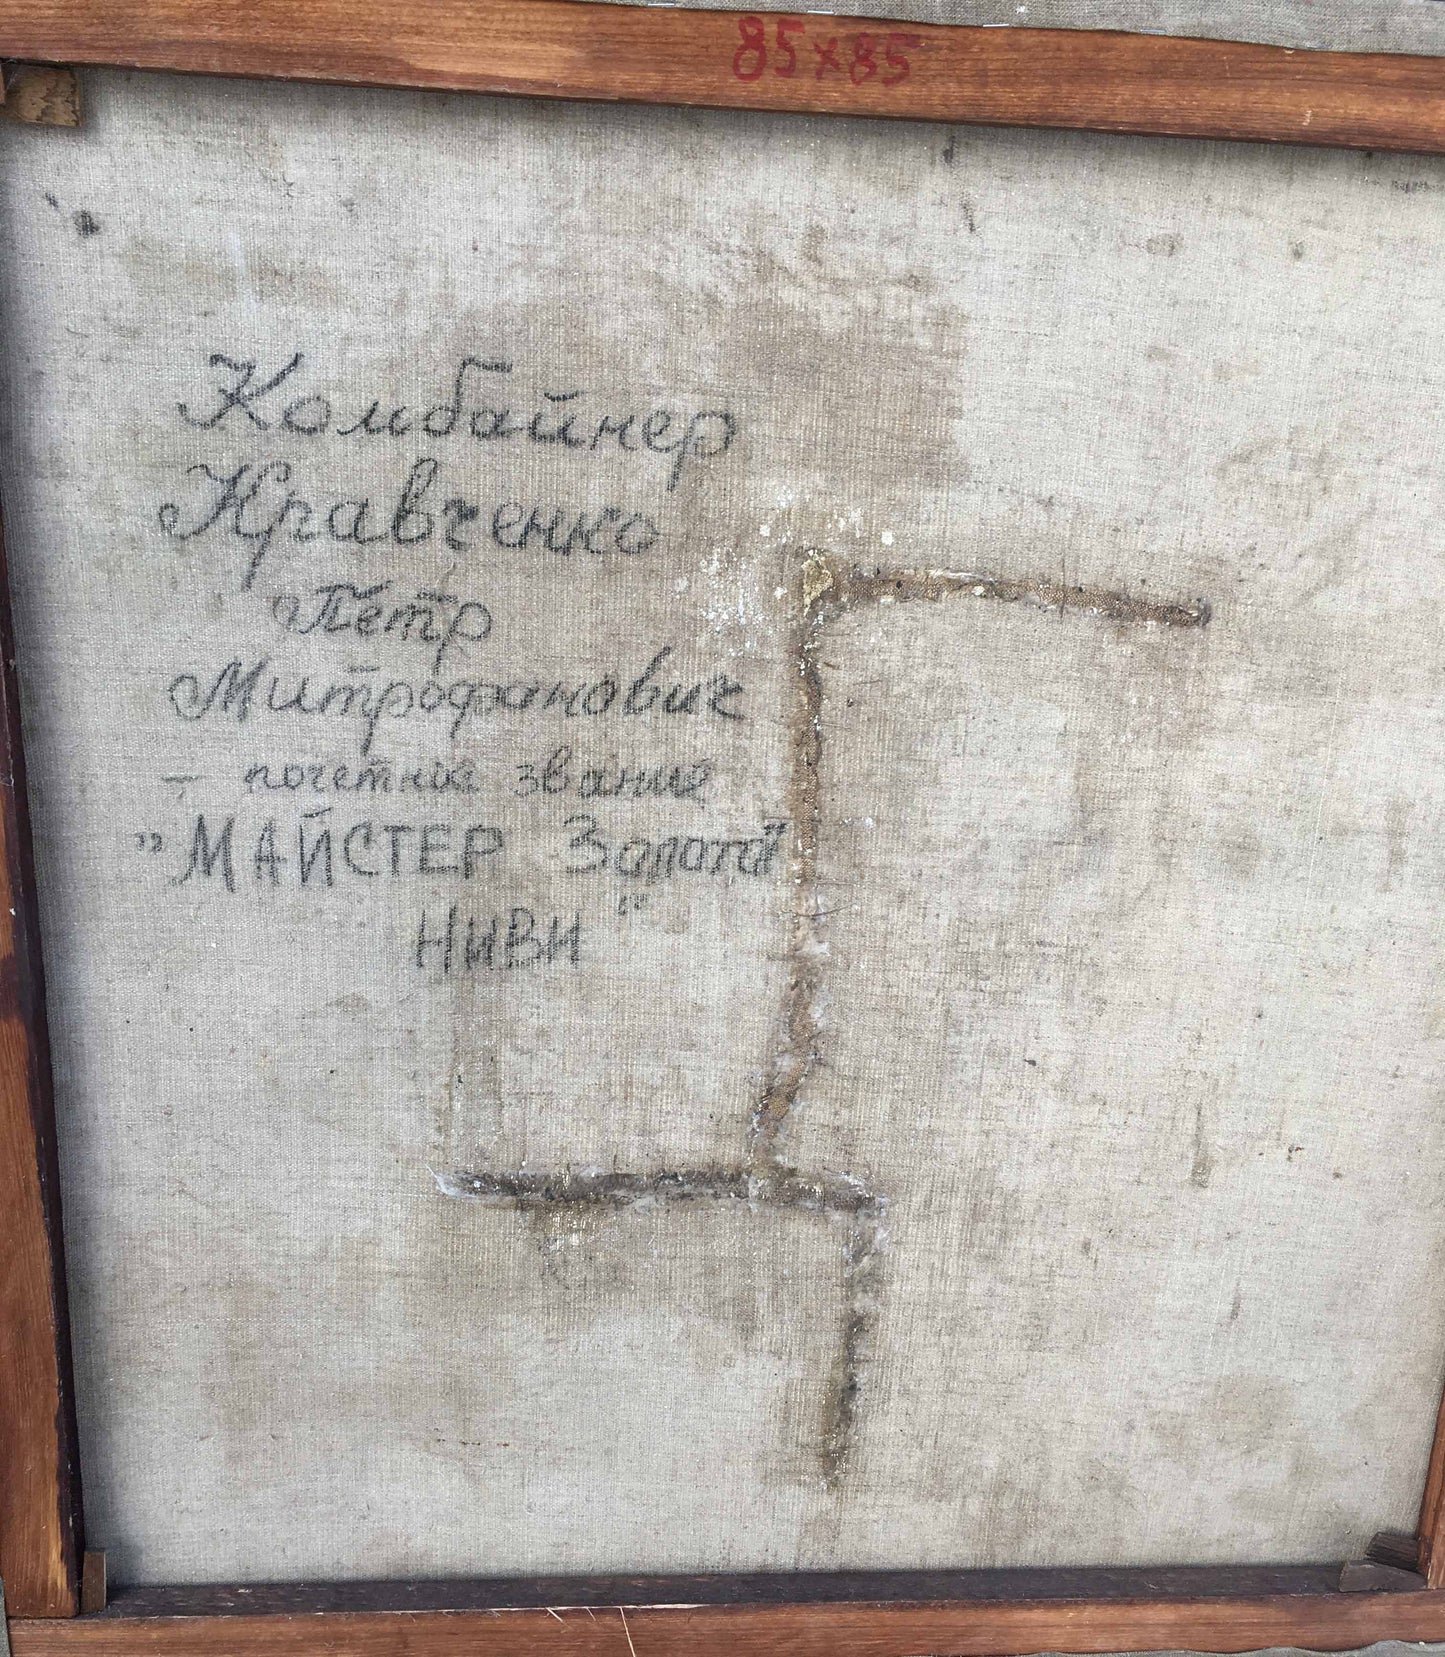 85х85
Комбайнер
Кравченко
Пётр
Митрофанович
- почетное звание
"МАЙСТЕР Золотої
Ниви"